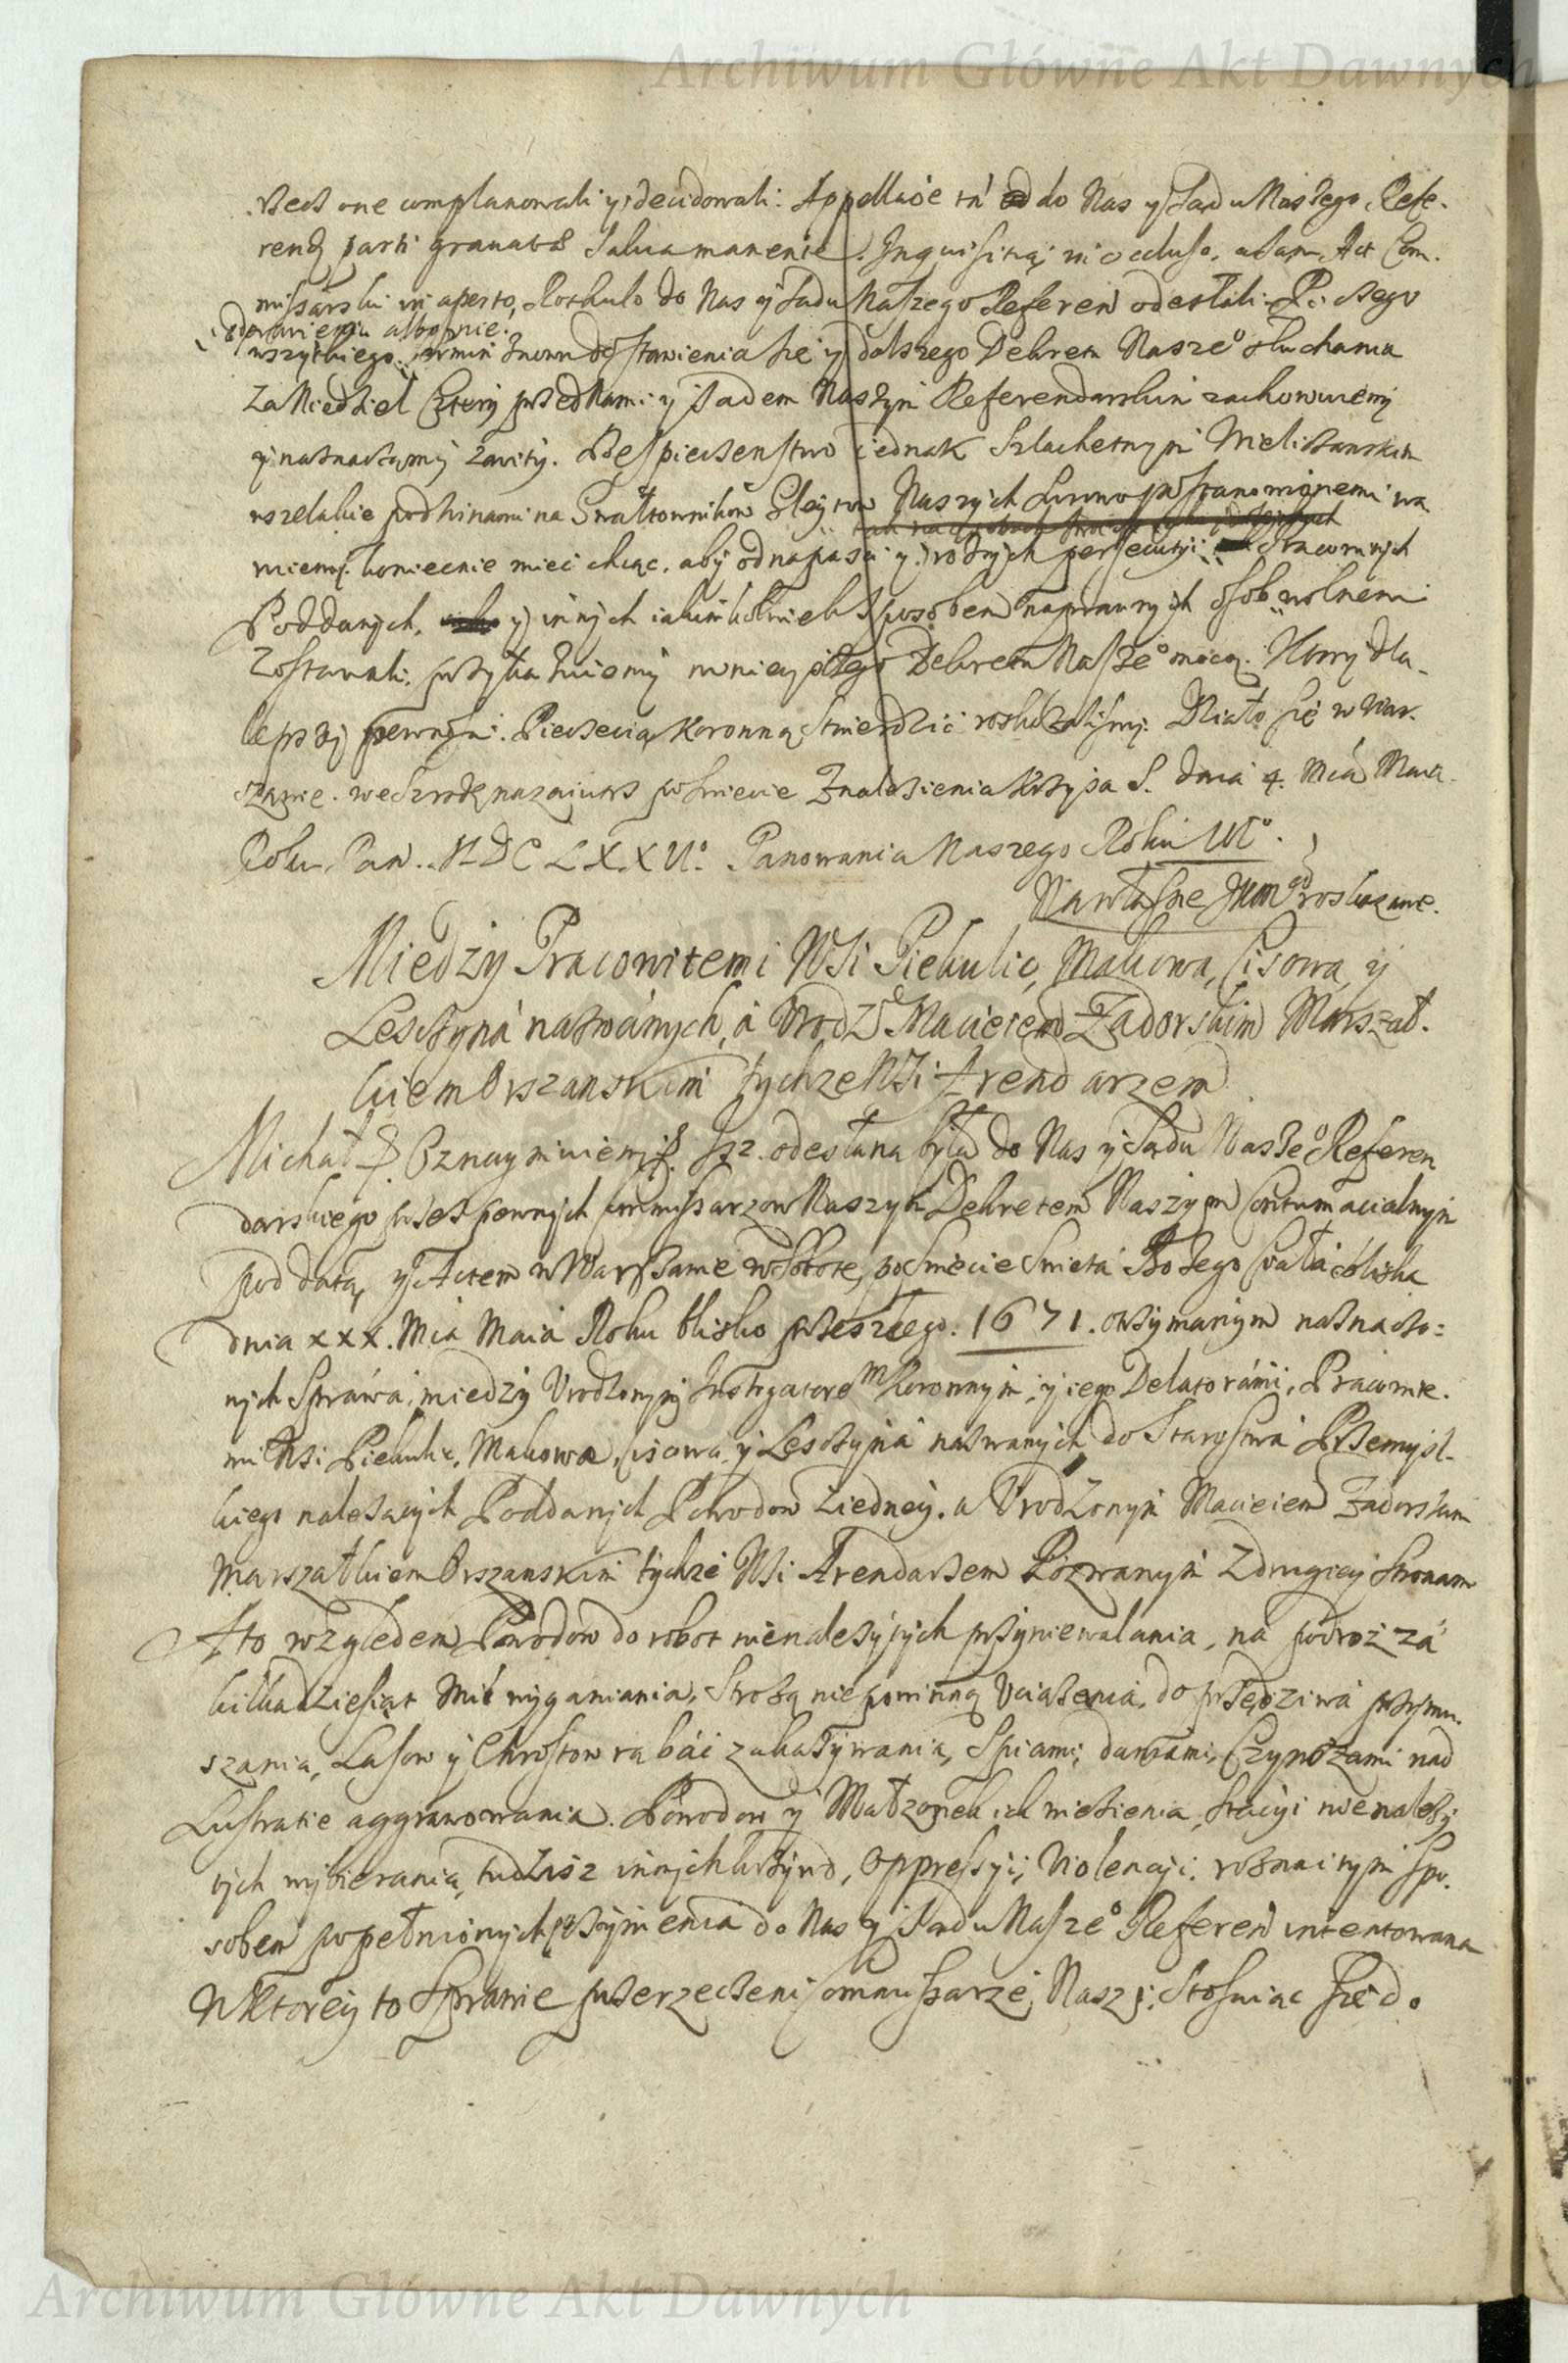 Archiwum Główne Akt Dawnych
rzecz one complanowali y decidowali: Appellacie tá do Nas y Sądu Naszego Refe-
rend parti gravatæ salva manente. Inquisitią in occluso, a sam Act Com-
missarski in aperto, Rotkulo do Nas y Sądu Naszego Referen odesłali. Po czego
odprawieniu albo nie:
wszytkiego, termin znowu do stawienia się y dalszego Dekretu Nasze° słuchania
Za Niedziel Cztery przed Nami y Sądem Naszym Referendarskim zachowuiemy
y naznaczamy zawity. Bespieczenstwo iednak Szlachetnym
wszelakie pod winami na Gwałtownikow Gleytow Naszych surowo postanowionemi wa
ruiemy. koniecznie mieć chcąc, aby od napaści y persecutyi Pracowitych
Poddanych, y innych iakimkolwiek sposobem naprawnych osob wolnemi
Zostawali, przykazuiemy ninieyszego Dekretu Nasze° mocą. Ktory dla
lepszej pewności Pieczecią Koronną stwierdzić roskazalismy. Działo się w War-
szawie we Srzodę nazaiutrz po swiecie Znalezienia Krzyża S. dnia 4. Mca Maia
Roku Pan. MDCLXXII° Panowania Naszego Roku III°.
Na własne roskazanie.
Między Pracowitemi Wsi Piekulic, Makowa, Cisowa, y
Lesczyná nazwánych, á Vrodz Macieiem Zadorskim Marszał-
kiem Orszanskim tychze Wsi Arendarzem
Michał Oznaymuiemy. Isz. odesłana była do Nas y Sądu Nasze° Referen
darskiego przez pewnych Commissarzow Naszych Dekretem Naszym Contumacialnym
pod datą, y Actem w Warszawie w Sobotę, po Swiecie Swięta Bożego Ciała blisko
dnia XXX. Mca Maia Roku blisko przeszłego. 1671. otrzymanym naznaczo=
nych Spráwa, między Vrodzonym Instigatorem Koronnym, y iego Delatorámi, Pracowite-
mi Wsi Piekulic, Makowa, Cisowa, y Lesczyná nazwanych do Starostwá Przemysl-
kiego należących Poddanych Powodow z iedney. a Vrodzonym Macieiem Zadorskim
Marszałkiem Orszanskim tychże Wsi Arendarzem Pozwanym z drugiey stronam
A to względem Powodow do robot nienależących przyniewalania, na podroż zá
kilkadziesiąt Mil wyganiania, Strożą niepowinną Vciążenia, do przędziwá przymu-
szania, Lasow y Chrostow rąbáć zakazywania, Spiami, daniami, Czynszami nad
Lustratie aggrawowania. Powodow y Małzonek ich więzienia, stácyi nienależy
tych wybierania, tudziesz innych krzywd, Oppressyi, Violencyi, roznaitym Spo-
sobem popełnionych przyczynienia do Nas y Sądu Nasze° Referen intentowana
W ktorey to Sprawie przerzeczeni Commissarze Naszi, Stosuiąc się do
Archiwum Główne Akt Dawnych